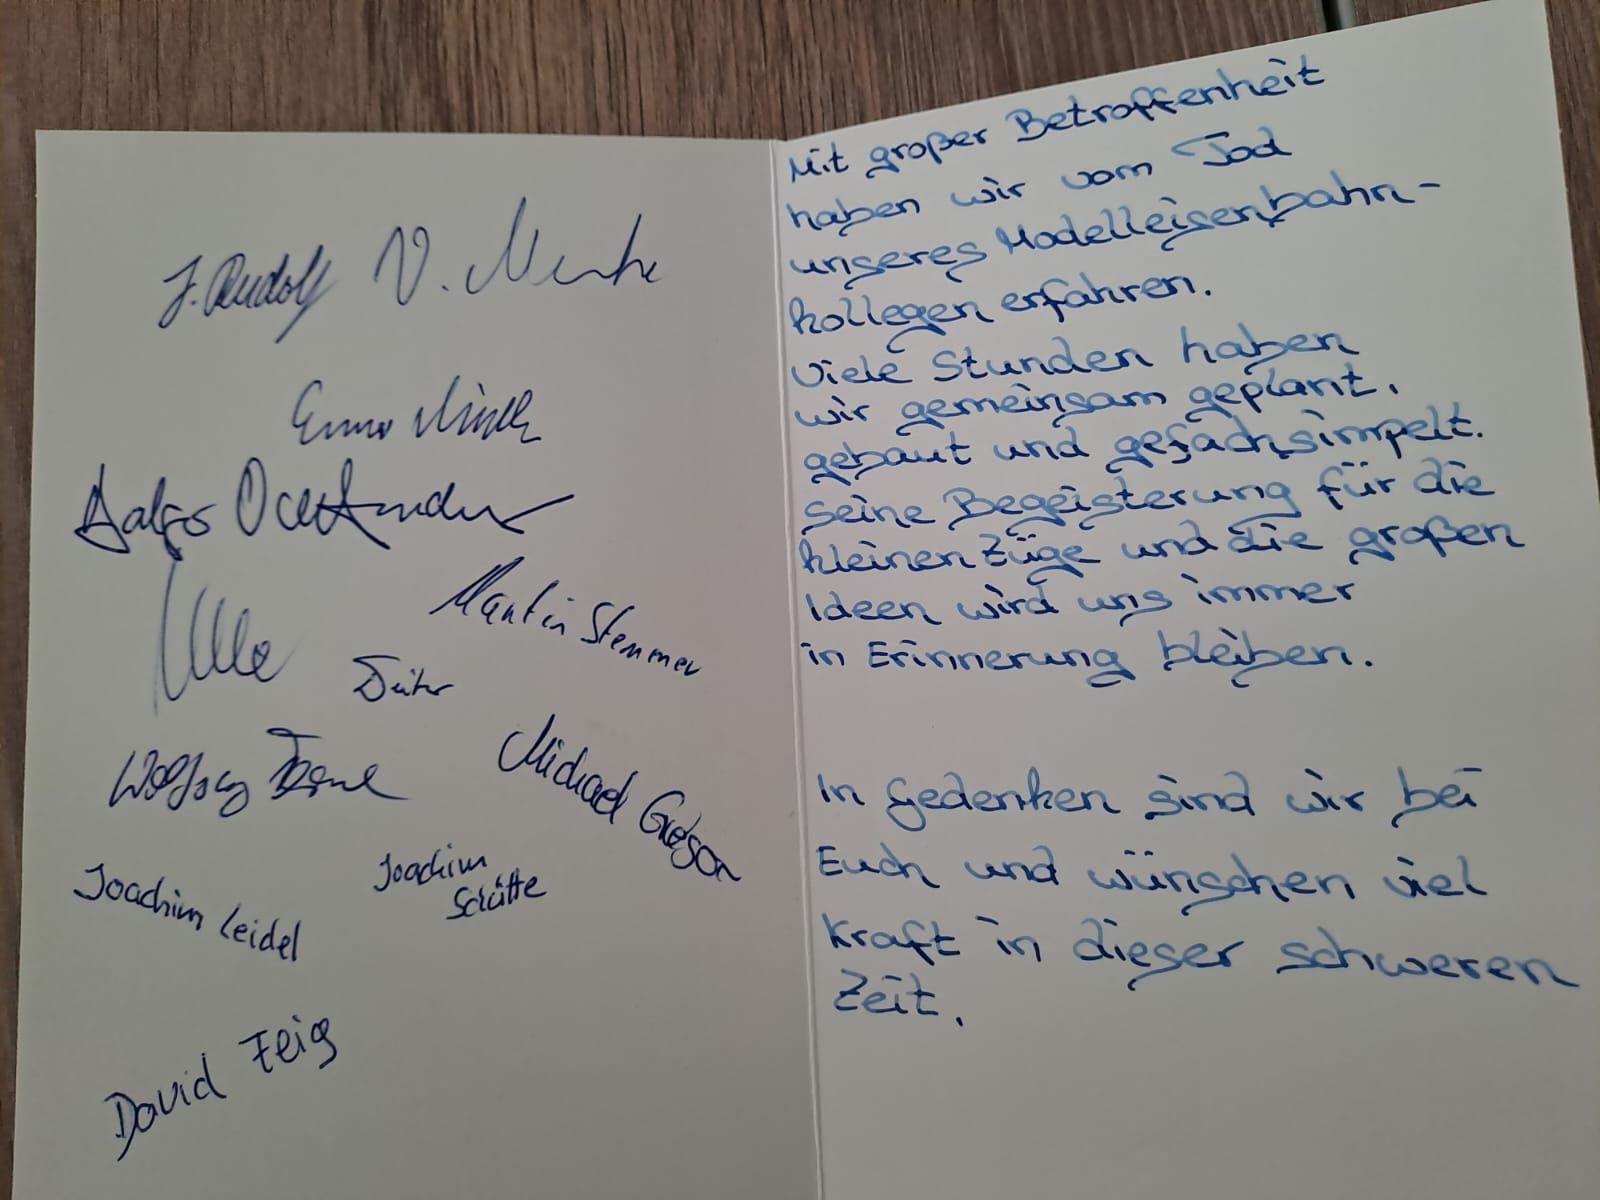 J. Rudolf
V.
Martin Stemmer
Dieter
Wolfgang
Michael
Joachim
Schütte
Joachim Leidel
David Feig
Mit großer Betroffenheit
haben wir vom Tod
unseres Modelleisenbahn-
kollegen erfahren.
Viele Stunden haben
wir gemeinsam geplant,
gebaut und gefachsimpelt.
Seine Begeisterung für die
kleinen Züge und die großen
Ideen wird uns immer
in Erinnerung bleiben.
In Gedenken sind wir bei
Euch und wünschen viel
Kraft in dieser schweren
Zeit.